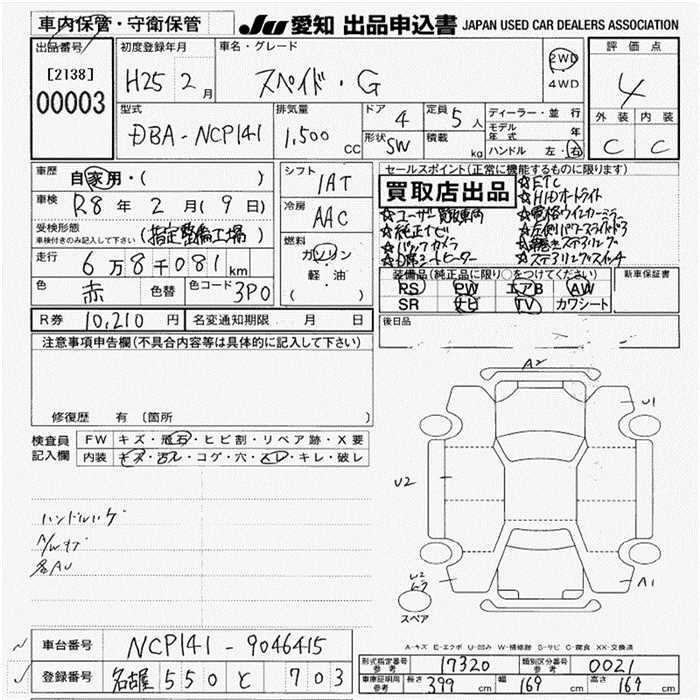 車内保管・守衛保管 JU 愛知 出品申込書 JAPAN USED CAR DEALERS ASSOCIATION
出品番号 初度登録年月 車名・グレード 評価点
[2138] H25 2月 スペイド・G 2WD 4
00003 4WD
型式 排気量 ドア 4 定員 5人 ディーラー・並行 外装 内装
DBA-NCP141 1,500 CC 形状 SW 積載 kg モデル年式 年 C C
ハンドル 左・右
車歴 自家用・( ) シフト セールスポイント(正常に機能するものに限ります)
車検 R8年2月(9日) 1AT 買取店出品 ☆ETC
☆HIDオートライト
冷房 AAC ☆ユーザー買取車両 ☆電格ウインカーミラー
受検形態 (指定整備工場) ☆純正ナビ ☆左側パワースライドドア
車検付きのみ記入して下さい 燃料 ガソリン ☆バックカメラ ☆革巻きステアリング
走行 6万8千081km 軽・油 ☆ステアリングスイッチ
( ) 装備品(純正品に限り○をつけてください) 新車保証書
色 赤 色替 色コード 3P0 RS PW エアB AW
SR ナビ TV カワシート
R券 10,210円 名変通知期限 月 日 後日品
注意事項申告欄(不具合内容等は具体的に記入して下さい)
A2
U1
修復歴 有 〔箇所
検査員 FW キズ・飛石・ヒビ割・リペア跡・X要
記入欄 内装 キズ・汚レ・コゲ・穴・スレ・キレ・破レ
U2
ハンドルハゲ
U2
A1
スペア
A-キズ E-エクボ U-凹み W-補修跡 S-サビ C-腐食 XX-交換済
車台番号 NCP141-9046415
型式指定番号 参考 17320 類別区分番号 参考 0021
登録番号 名古屋 550 と 703
車庫証明用 参考 長さ 399cm 幅 169cm 高さ 169cm